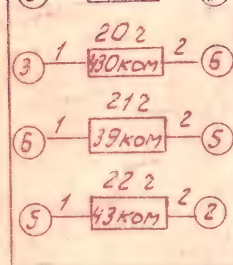 20г
3 1 430ком 2 6
21г
6 1 39ком 2 5
22г
5 1 43ком 2 2